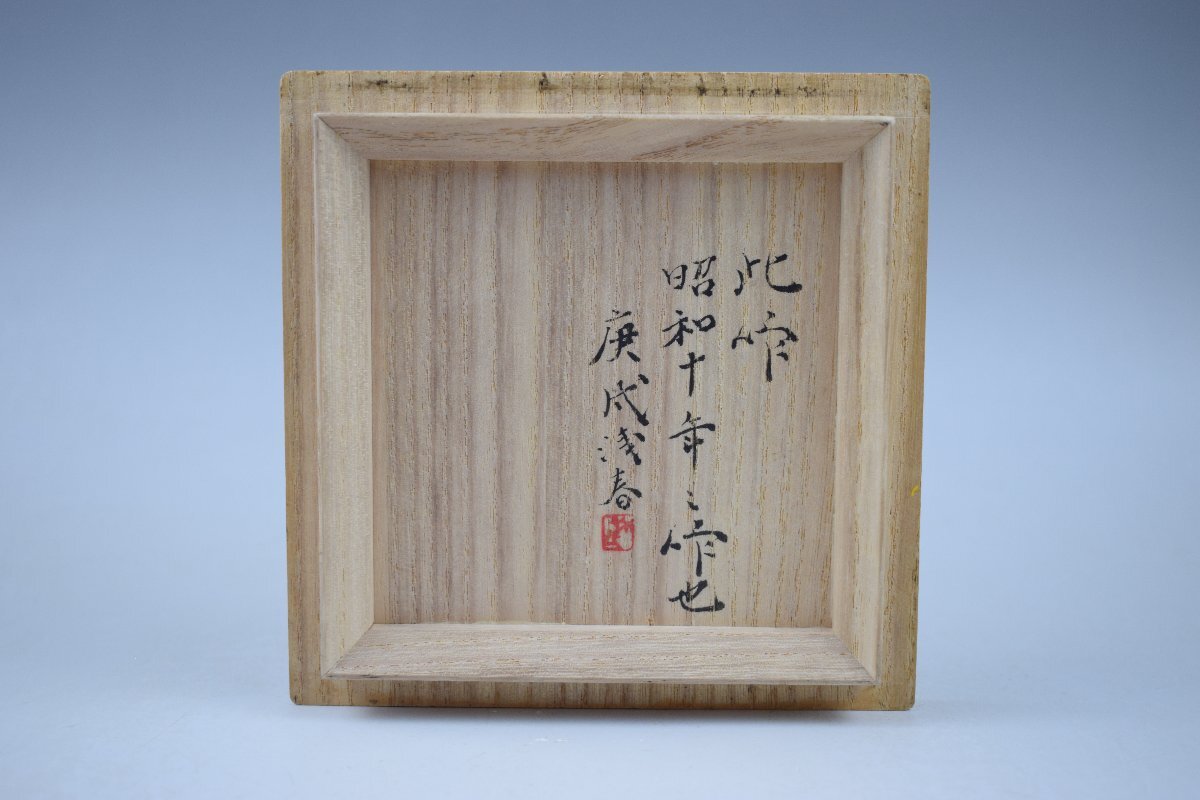 此作
昭和十年之作也
庚戌浅春